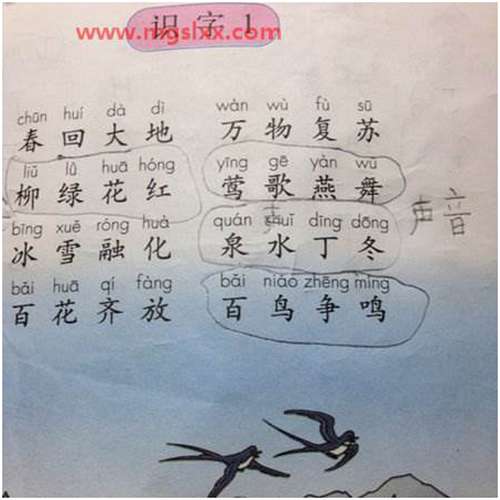 www.mgslxx.com
识字1
chūn huí dà dì wàn wù fù sū
春回大地 万物复苏
liǔ lǜ huā hóng yīng gē yàn wǔ
柳绿花红 莺歌燕舞
bīng xuě róng huà quán shuǐ dīng dōng
冰雪融化 泉水丁冬
声音
bǎi huā qí fàng bǎi niǎo zhēng míng
百花齐放 百鸟争鸣